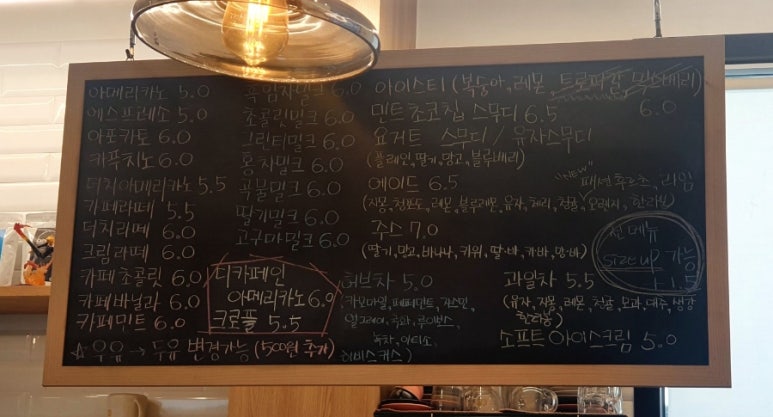 아메리카노 5.0
에스프레소 5.0
아포카토 6.0
카푸치노 6.0
더치아메리카노 5.5
카페라떼 5.5
더치라떼 6.0
크림라떼 6.0
카페초콜릿 6.0
카페바닐라 6.0
카페민트 6.0
☆ 우유 → 두유 변경가능 (500원 추가)
흑임자밀크 6.0
초콜릿밀크 6.0
그린티밀크 6.0
홍차밀크 6.0
곡물밀크 6.0
딸기밀크 6.0
고구마밀크 6.0
디카페인
아메리카노 6.0
크로플 5.5
아이스티 (복숭아, 레몬, 트로피칼,
6.0
민트초코칩 스무디 6.5
요거트 스무디 / 유자스무디
(플레인, 딸기, 망고, 블루베리)
에이드 6.5
"NEW"
패션후르츠, 라임
(자몽, 청포도, 레몬, 블루레몬, 유자, 체리, 청귤, 오렌지, 한라봉)
주스 7.0
(딸기, 망고, 바나나, 키위, 딸·바, 카·바, 망·바)
전메뉴
size up 가능
+ 1.5
허브차 5.0
카모마일, 페퍼민트, 자스민,
얼그레이, 국화, 루이보스,
녹차,
히비스커스)
과일차 5.5
(유자, 자몽, 레몬, 청귤, 모과, 대추, 생강
한라봉)
소프트 아이스크림 5.0